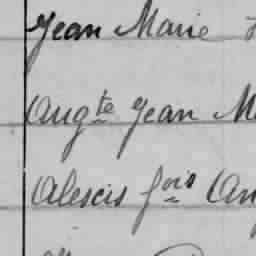 Jean Marie
Aug^te Jean M
Alexis f^ois An